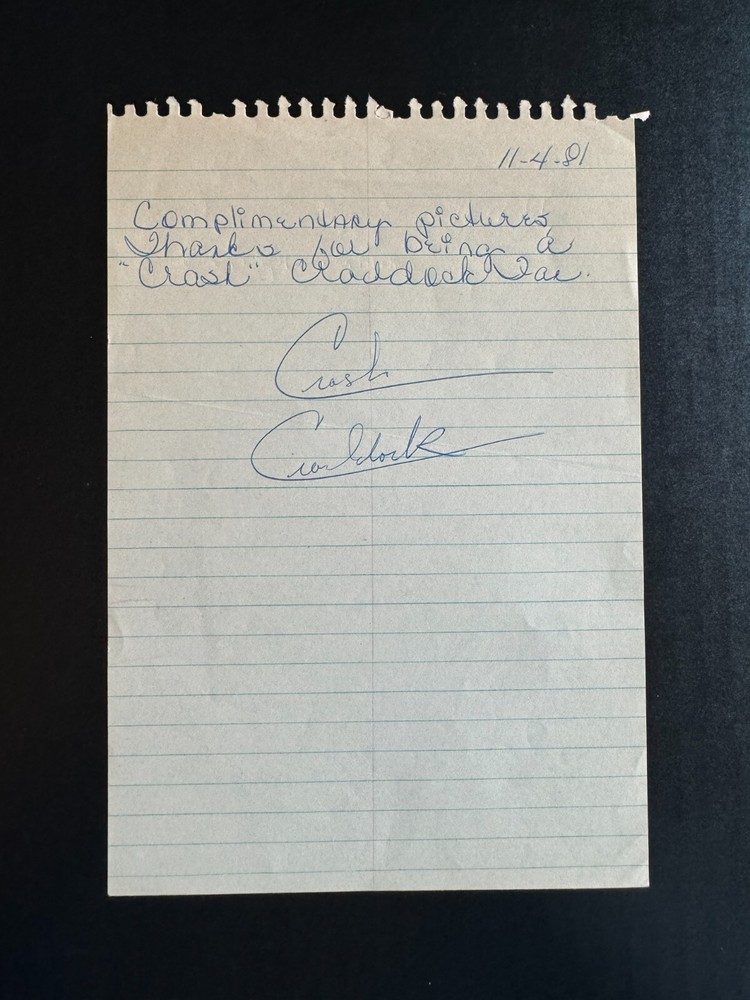 11-4-81
Complimentary pictures,
Thanks for being a
"Crash" Craddock Fan.
Crash
Craddock